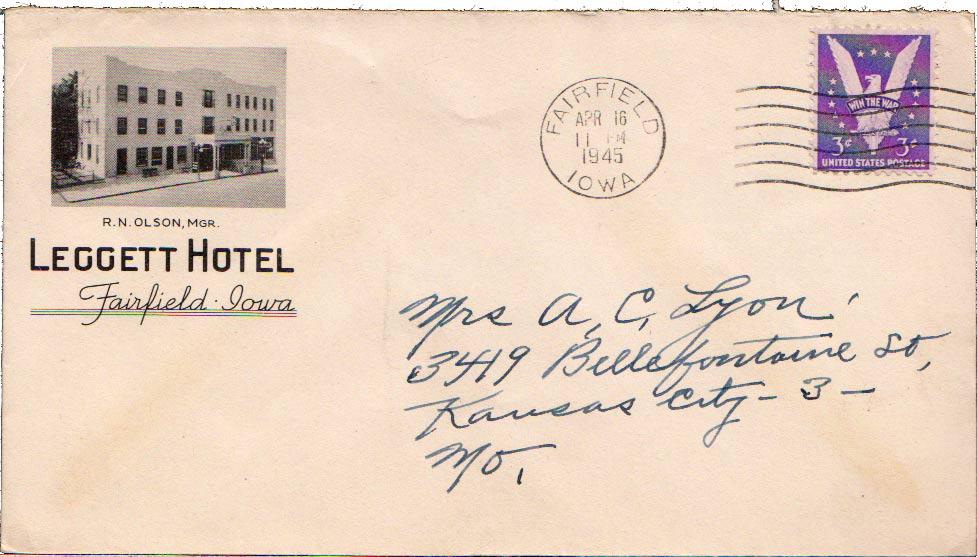 R.N. OLSON, MGR.
LEGGETT HOTEL
Fairfield · Iowa
FAIRFIELD
APR 16
11
1945
IOWA
WIN THE WAR
3¢ 3¢
UNITED STATES POSTAGE
Mrs A. C. Lyon
3419 Bellefontaine St,
Kansas City - 3 -
Mo.